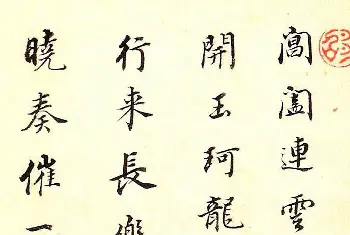 閶闔連雲
開玉珂龍
行来長
曉奏催